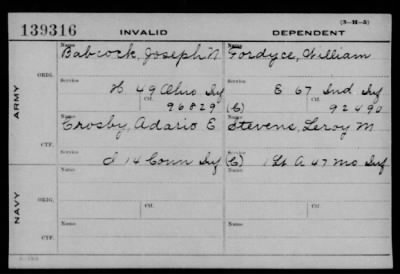 (3-M-5)
139316 INVALID DEPENDENT
Name Name
Babcock, Joseph N Fordyce, William
ORIG.
Service Service
H 49 Ohio Inf E 67 Ind Inf
Ctf. Ctf.
96829 (C) 92490
ARMY
Name Name
Crosby, Adario E Stevens, Leroy M
CTF.
Service Service
I 14 Conn Inf (C) 1 Lt A 47 Mo Inf
Name Name
ORIG.
Ctf. Ctf.
NAVY
Name Name
CTF.